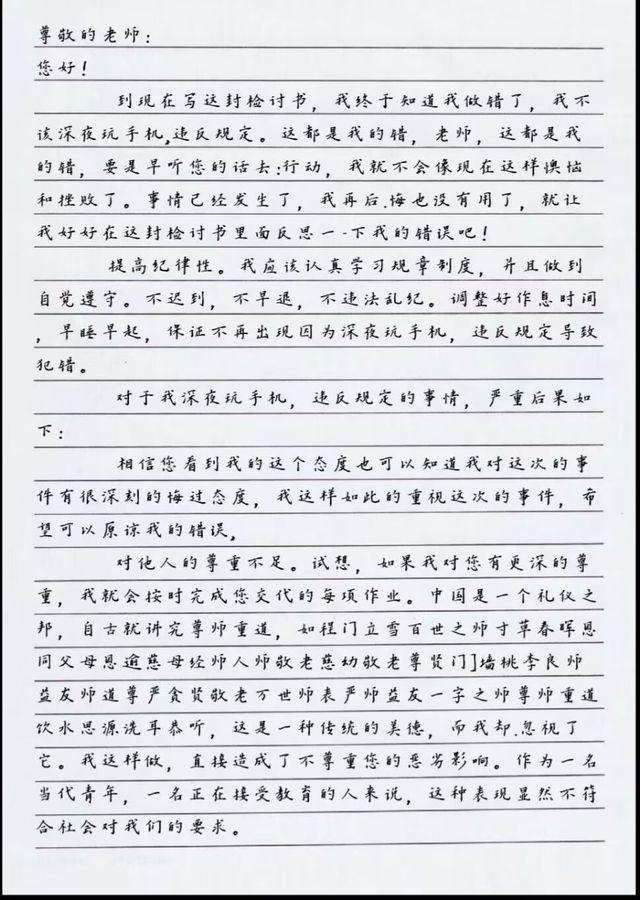 尊敬的老师:
您好!
到现在写这封检讨书,我终于知道我做错了,我不
该深夜玩手机,违反规定。这都是我的错,老师,这都是我
的错,要是早听您的话去:行动,我就不会像现在这样懊恼
和挫败了。事情已经发生了,我再后.悔也没有用了,就让
我好好在这封检讨书里面反思一-下我的错误吧!
提高纪律性。我应该认真学习规章制度,并且做到
自觉遵守。不迟到,不早退,不违法乱纪。调整好作息时间
,早睡早起,保证不再出现因为深夜玩手机,违反规定导致
犯错。
对于我深夜玩手机,违反规定的事情,严重后果如
下:
相信您看到我的这个态度也可以知道我对这次的事
件有很深刻的悔过态度,我这样如此的重视这次的事件,希
望可以原谅我的错误,
对他人的尊重不足。试想,如果我对您有更深的尊
重,我就会按时完成您交代的每项作业。中国是一个礼仪之
邦,自古就讲究尊师重道,如程门立雪百世之师寸草春晖恩
同父母恩逾慈母经师人师敬老慈幼敬老尊贤门]墙桃李良师
益友师道尊严贪贤敬老万世师表严师益友一字之师尊师重道
饮水思源洗耳恭听,这是一种传统的美德,而我却.忽视了
它。我这样做,直接造成了不尊重您的恶劣影响。作为一名
当代青年,一名正在接受教育的人来说,这种表现显然不符
合社会对我们的要求。